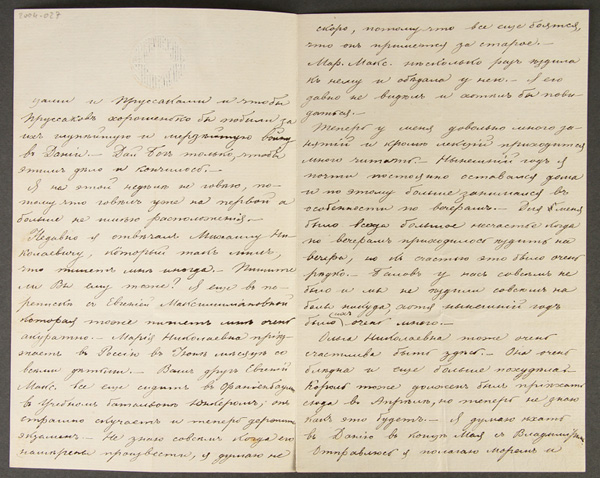 2006-027
зами и Пруссаками и чтобы
Пруссаковъ хорошенько бы побили за
ихъ глупѣйшую и мерзѣйшую войну
въ Даніи. — Дай Богъ только, чтобы
этимъ дѣло и кончилось. —
Я на этой недѣлѣ не говѣю, по-
тому что говѣлъ уже на первой а
больше не имѣю расположенія. —
Недавно я отвѣчалъ Михаилу Ни-
колаевичу, который такъ милъ,
что пишетъ мнѣ иногда. — Пишите
ли Вы ему тоже? Я еще въ пе-
репискѣ съ Евгеніей Максимиліановной
которая тоже пишетъ мнѣ очень
акуратно. — Марія Николаевна прiѣз-
жаетъ въ Россію въ Іюнѣ мѣсяцѣ со
всѣми дѣтьми. — Вашъ другъ Евгеній
Макс. все еще сидитъ въ
въ Учебномъ баталіонѣ Юнкеромъ; онъ
страшно скучаетъ и теперь
экзаменъ. — Не знаю совсѣмъ когда его
намѣрены произвести, я думаю не
скоро, потому что все еще боятся,
что онъ примется за старое. —
Мар. Макс. нѣсколько разъ ѣздила
къ нему и обѣдала у него. — Я его
давно не видѣлъ и хотѣлъ бы пови-
даться. —
Теперь у меня довольно много за-
нятій и кромѣ лекцій приходится
много читать. — Нынешній годъ я
почти постоянно оставался дома
и по этому больше занимался въ
особенности по вечерамъ. — Для меня
было всегда большое несчастье когда
по вечерамъ приходилось ѣздить на
вечера, но къ счастью это было очень
рѣдко. — Баловъ у насъ совсѣмъ не
было и мы не ѣздили совсѣмъ на
балы никуда, хотя нынешній годъ
было ихъ очень много. —
Ольга Николаевна тоже очень
счастлива быть здѣсь. — Она очень
блѣдна и еще больше похудѣла.
Король тоже долженъ былъ пріѣхать
сюда въ Апрѣлѣ, но теперь не знаю
какъ это будетъ. — Я думаю ѣхать
въ Данію въ концѣ Мая съ
Отправлюсь я полагаю моремъ и